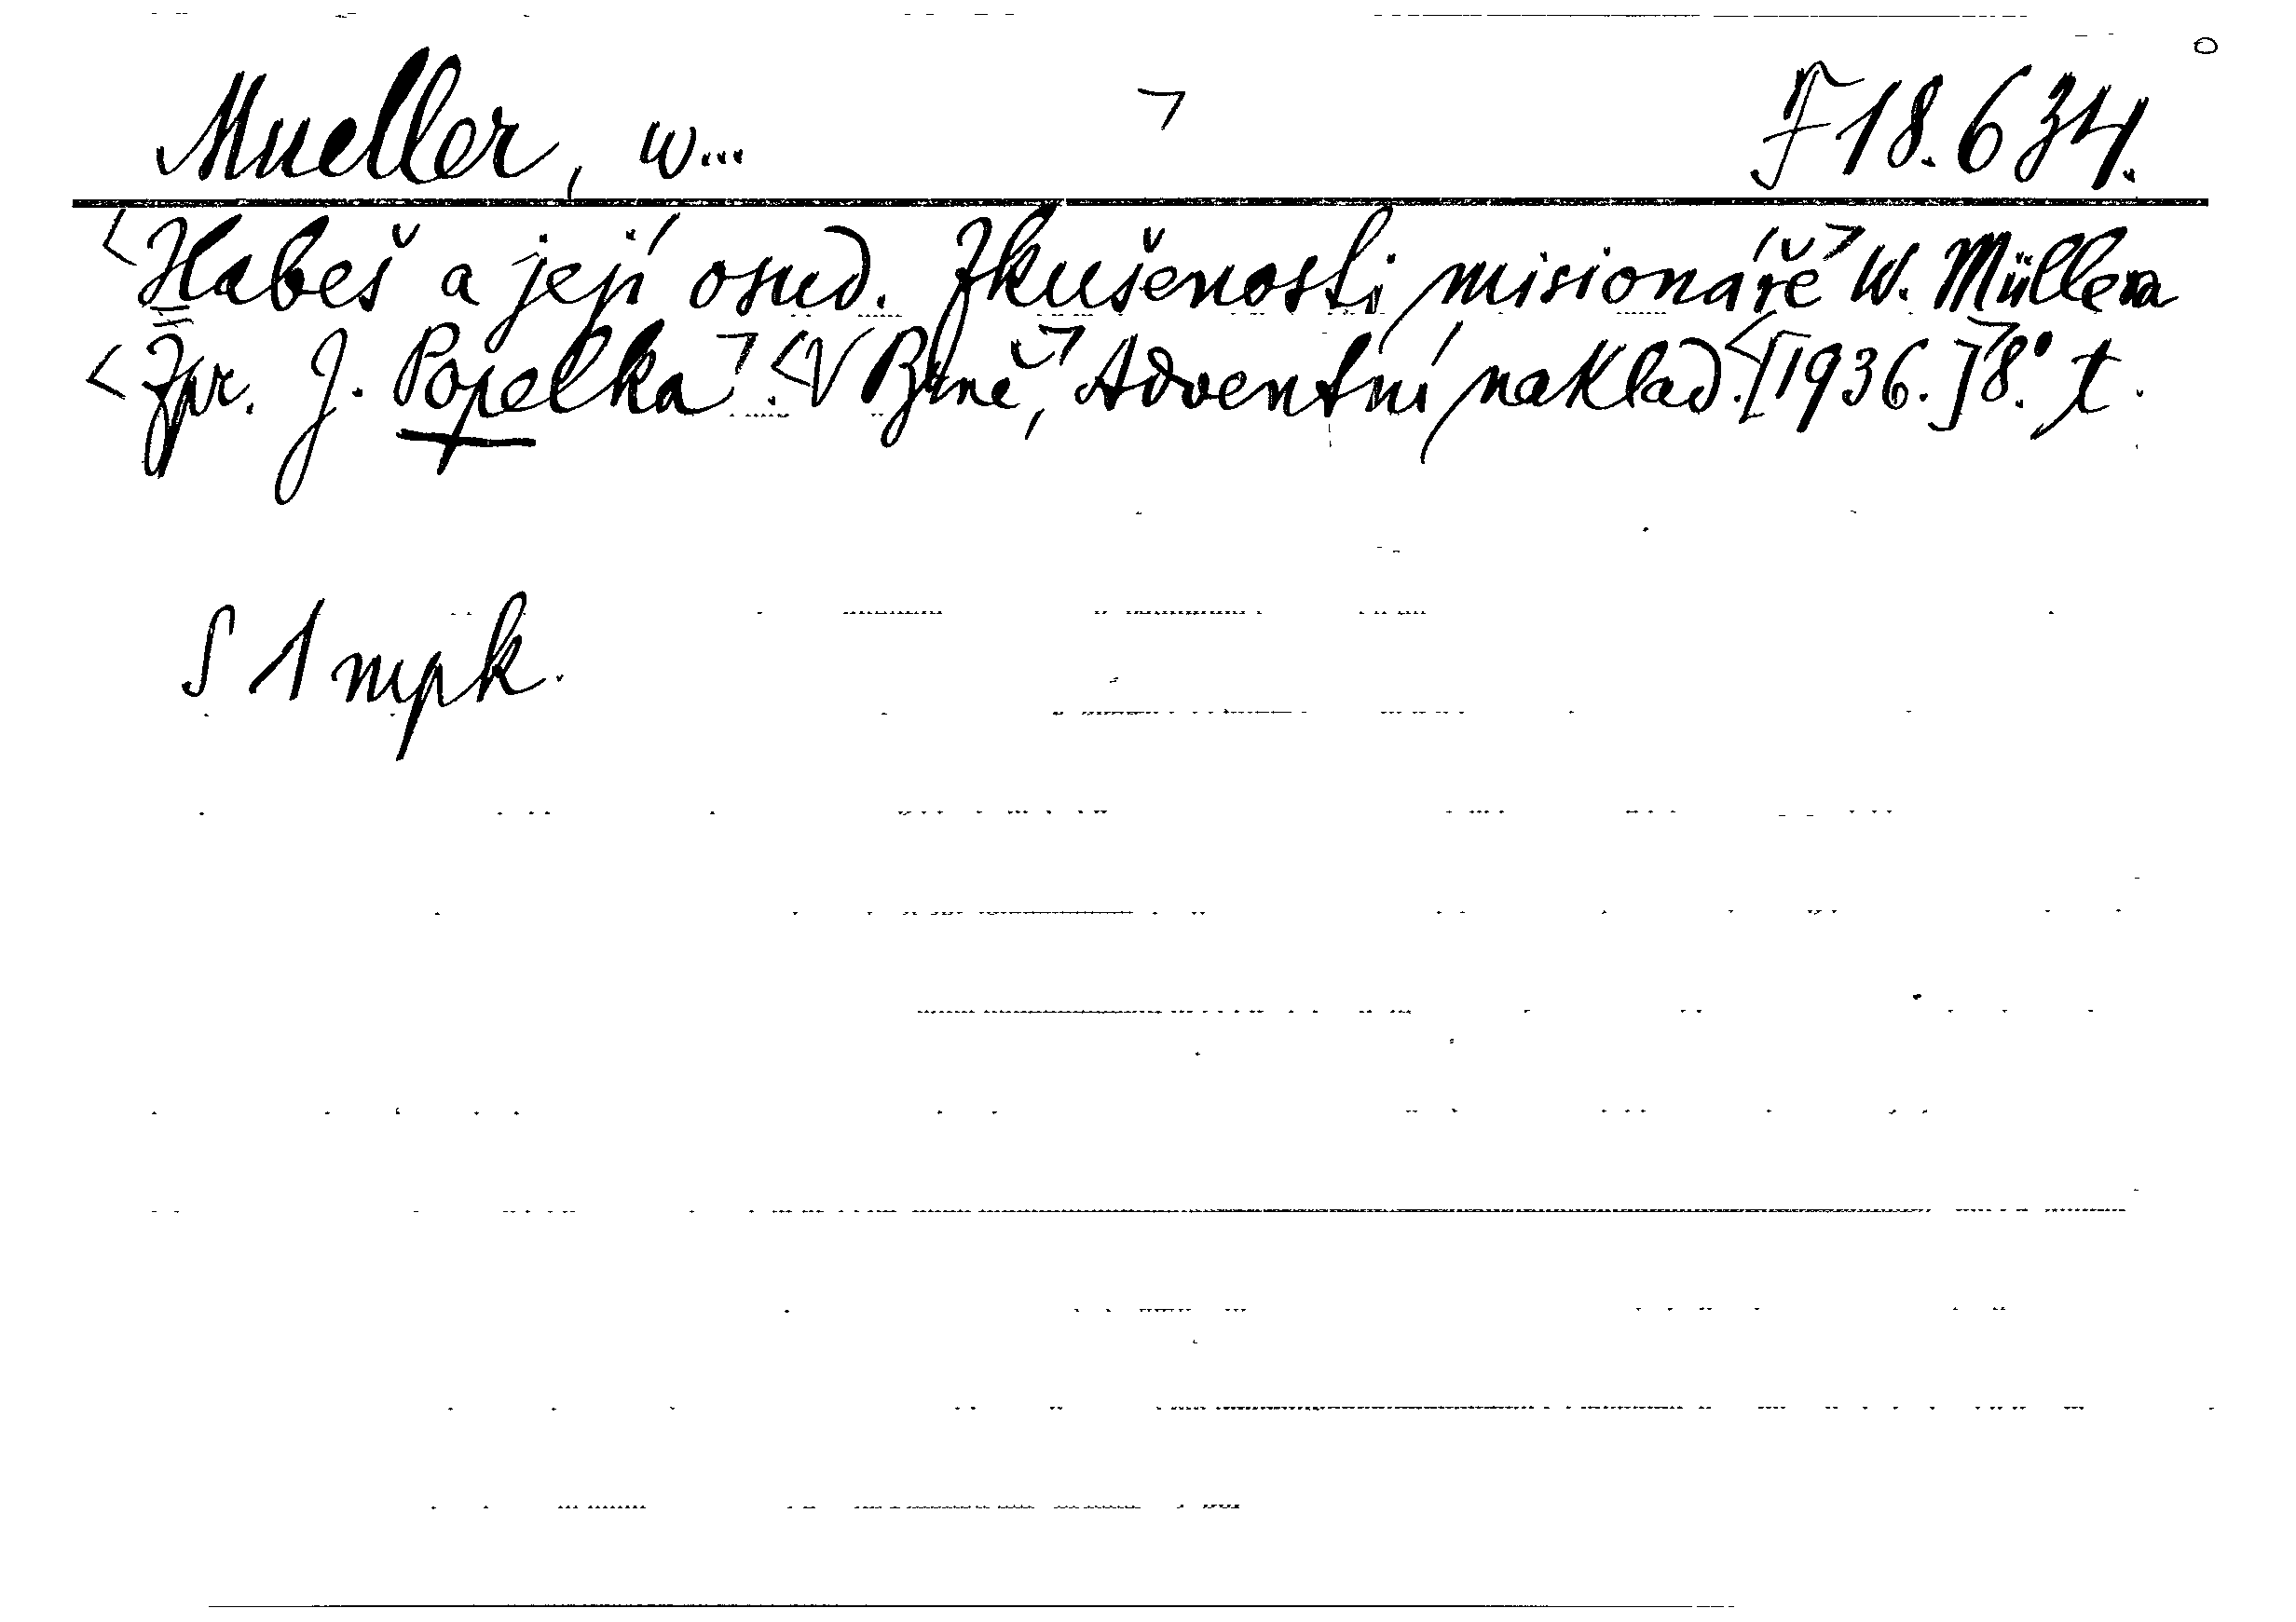 Mueller, W... ¬ F 18.634.
<Habeš a její osud. Zkušenosti misionáře¬ W. Müllera
<Zpr. J. Popelka¬. <V Brně,¬ Adventní naklad. <[1936.]¬ 8.° t.
S 1 mpk.